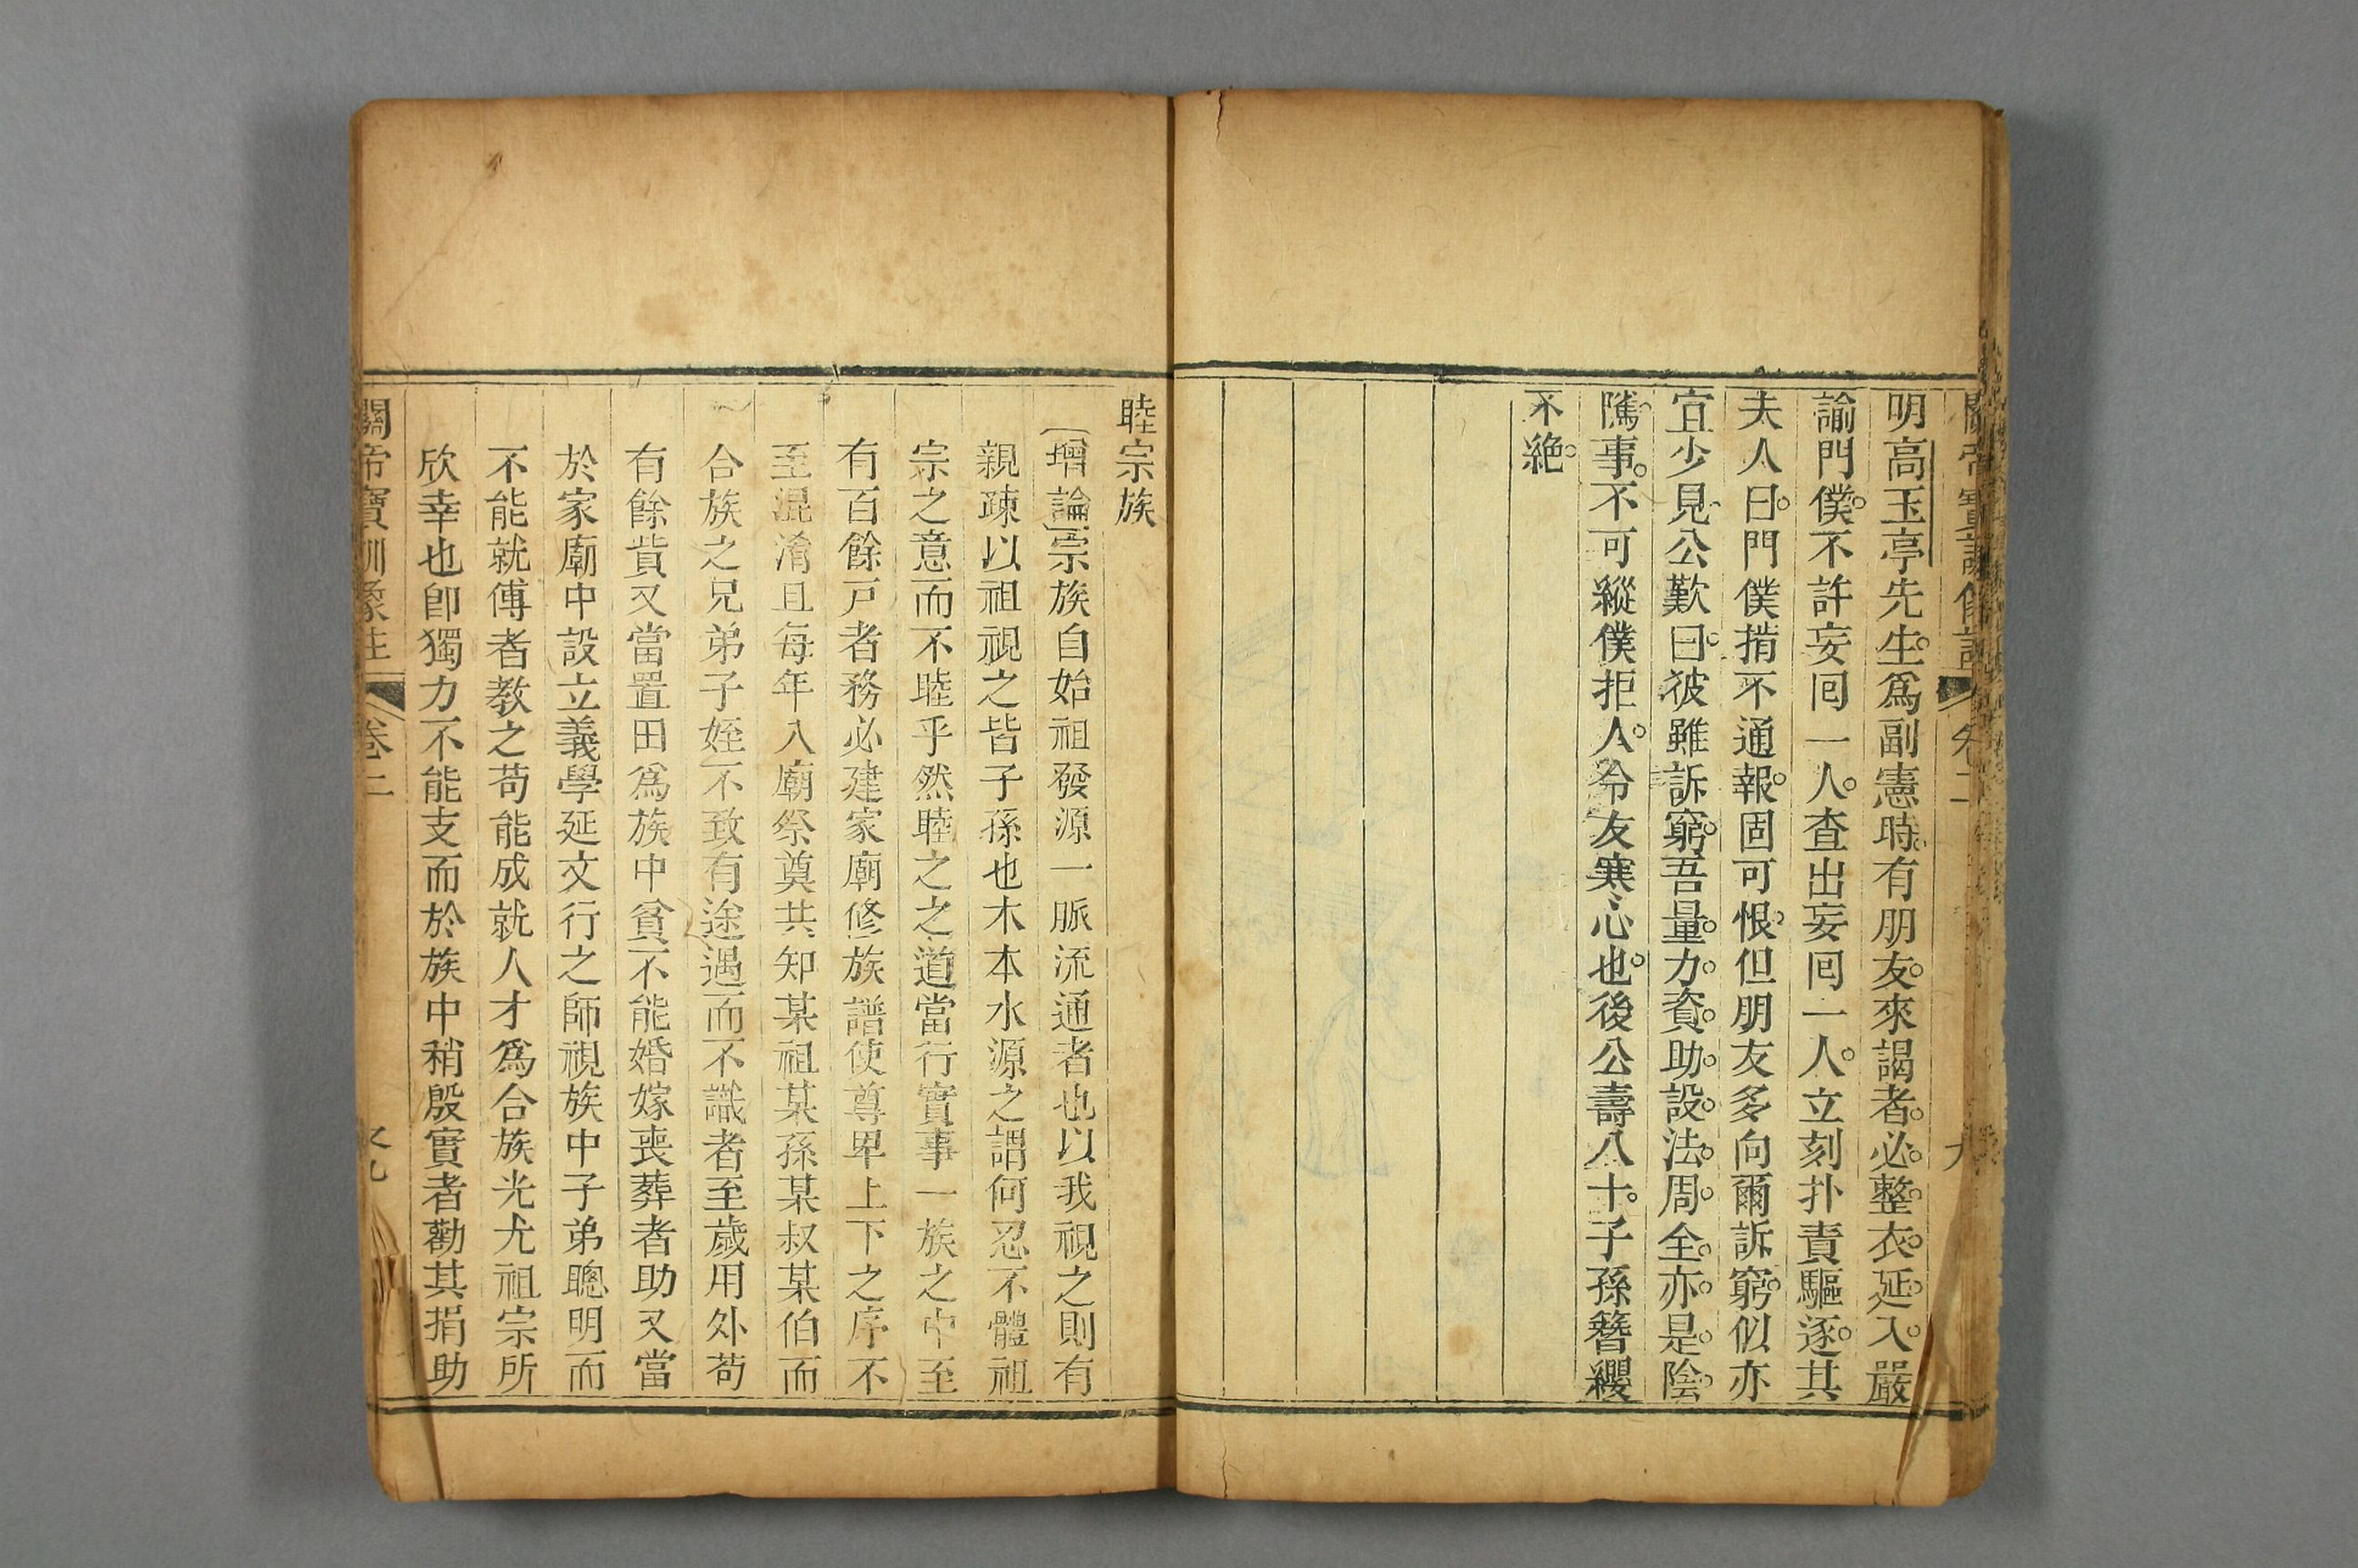 明高玉亭先生。爲副憲時。有朋友。來謁者。必。整。衣。延。入。嚴
諭門僕。不許妄回一人。查出妄回一人。立刻扑責驅逐。其
夫人曰。門僕揹不通報。固可恨。但朋友多向爾訴窮。似亦
宜少見、公歎曰。彼雖訴窮。吾量。力。資。助。設。法。周。全。亦。是。陰。
隲。事。不可縱僕拒人。令友寒心也。後公壽八十。子孫簪纓
不絶。
睦宗族
〔增論〕宗族自始祖發源一脈流通者也以我視之則有
親疎以祖視之皆子孫也木本水源之謂何忍不體祖
宗之意而不睦乎然睦之之道當行實事一族之中至
有百餘戸者務必建家廟修族譜使尊卑上下之序不
至混淆且每年入廟祭奠共知某祖某孫某叔某伯而
合族之兄弟子姪不致有途遇而不識者至歲用外苟
有餘貲又當置田爲族中貧不能婚嫁喪葬者助又當
於家廟中設立義學延文行之師視族中子弟聰明而
不能就傅者教之苟能成就人才爲合族光尤祖宗所
欣幸也卽獨力不能支而於族中稍殷實者勸其捐助
關帝寶訓像註 卷二